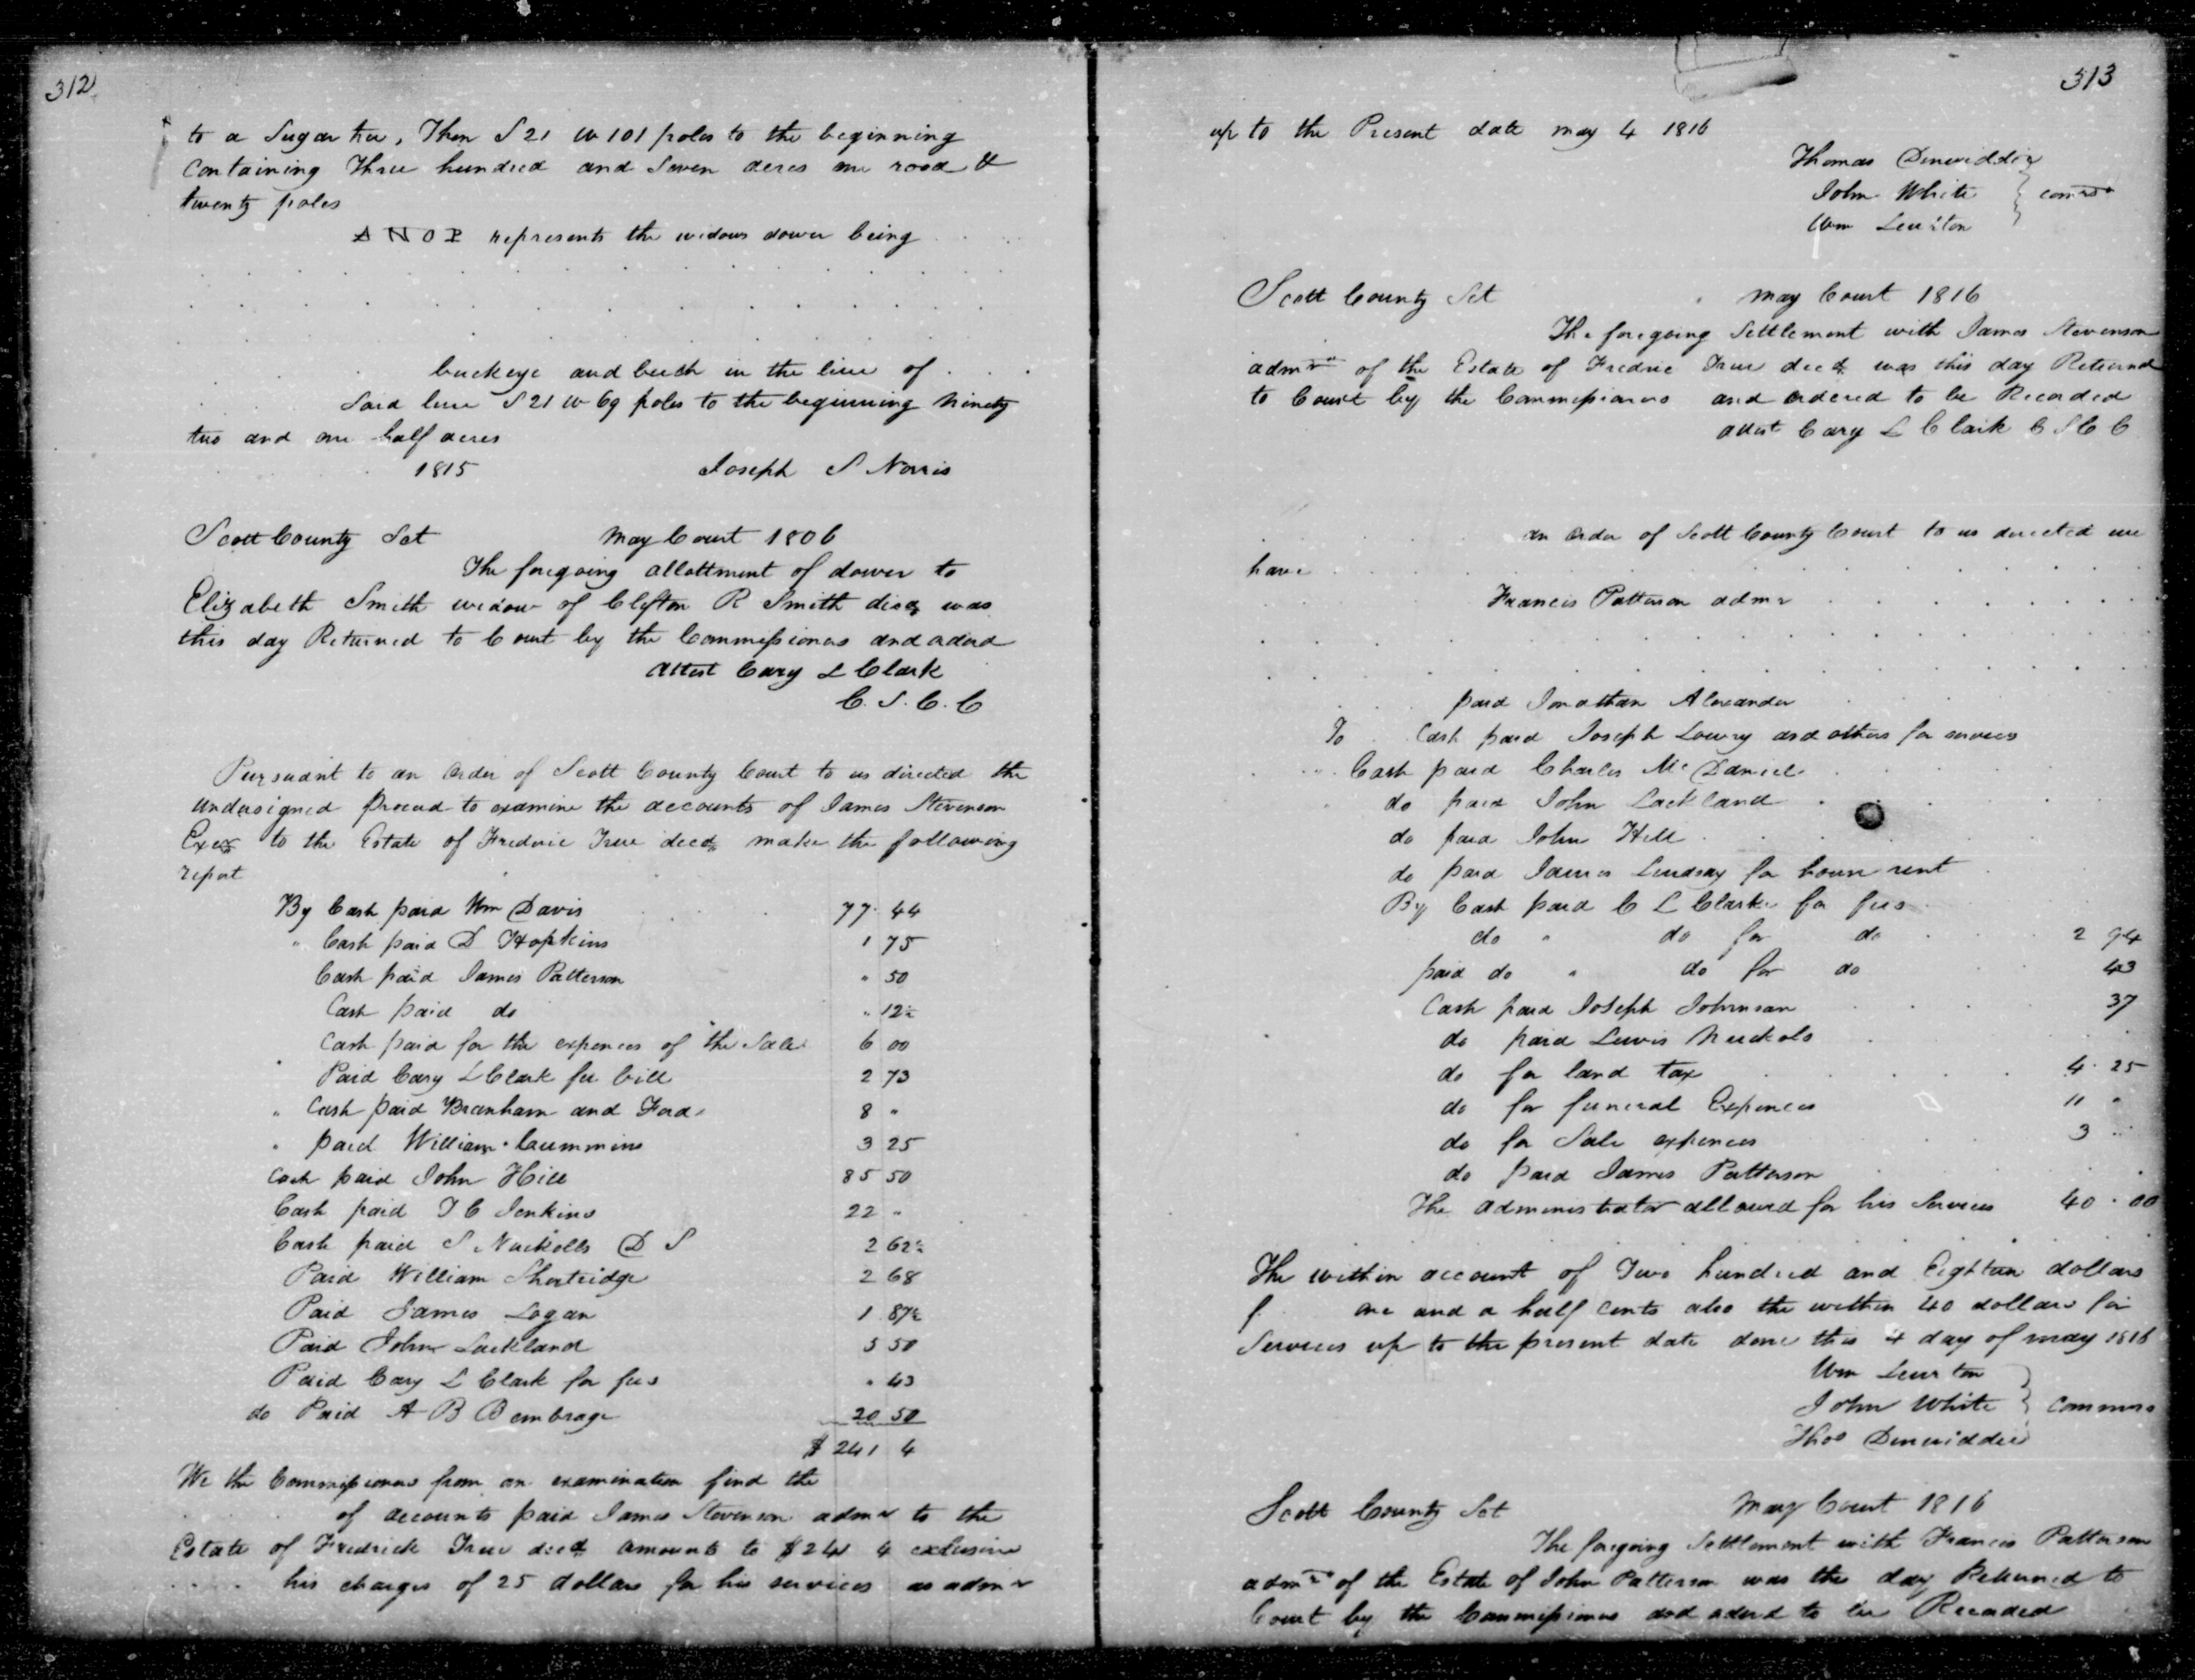 312
to a Sugar tree, Then S 21 W 101 poles to the beginning
Containing Three hundred and Seven acres one rood &
twenty poles
A N O P represents the widows dower being
buckeye and beech in the line of
Said line S 21 W 69 poles to the beginning Ninety
two and one half acres
1815 Joseph S Norris
Scott County Sct May Court 1806
The foregoing allottment of dower to
Elizabeth Smith widow of Clifton R Smith decd was
this day Returned to Court by the Commissioners and ordered
Attest Cary L Clark
C. S. C. C
Pursuant to an order of Scott County Court to us directed the
undersigned proceed to examine the accounts of James Stevenson
Exer to the Estate of Fredric True decd make the following
report
By Cash paid Wm Davis 77. 44
" Cash paid D Hopkins 1 75
Cash paid James Patterson " 50
Cash paid do " 12½
Cash paid for the expences of the Sale 6 00
Paid Cary L Clark fee bill 2 73
" Cash paid Branham and Ford 8 "
" paid William Cummins 3 25
Cash paid John Hill 85 50
Cash paid T C Jenkins 22 "
Cash paid S Nuckolls D S 2 62½
Paid William Shortridge 2 68
Paid James Logan 1 87½
Paid John Lackland 5 50
Paid Cary L Clark for fees " 43
do Paid A B Bembrage 20 50
$ 241 4
We the Commissioners from an examination find the
of accounts paid James Stevenson admr to the
Estate of Fredrick True decd amounts to $241 4 exclusive
his charges of 25 dollars for his services as admr
313
up to the Present date may 4 1816
Thomas Dinwiddie
John White } comrs
Wm Lewiton
Scott County Sct May Court 1816
The foregoing Settlement with James Stevenson
admr of the Estate of Fredric True decd was this day Returned
to Court by the Commissioners and ordered to be Recorded
attest Cary L Clark C S C C
an order of Scott County Court to us directed we
have
Francis Patterson admr
paid Jonathan Alexander
To Cash paid Joseph Lowry and others for services
" Cash paid Charles McDaniel
do paid John Lackland
do paid John Hill
do paid James Lindsay for house rent
By Cash paid C L Clarke for fees
do " do for do 2 94
paid do " do for do 43
Cash paid Joseph Johnson 37
do paid Lewis Nuckols
do for land tax 4. 25
do for funeral Expences 11 "
do for Sale expences 3 "
do paid James Patterson
The administrator allowed for his Services 40. 00
The within account of Two hundred and Eighteen dollars
f one and a half cents also the within 40 dollars for
Services up to the present date done this 4 day of may 1816
Wm Lewiton
John White } Commrs
Thos Dinwiddie
Scott County Sct May Court 1816
The foregoing Settlement with Francis Patterson
admr of the Estate of John Patterson was this day Returned to
Court by the Commissioners and ordered to be Recorded